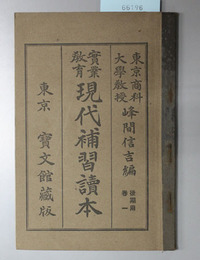 66196
東京商科
大學教授 峰間信吉編
實業
敎育 現代補習讀本
後期用
卷一
東京 寶文館藏版